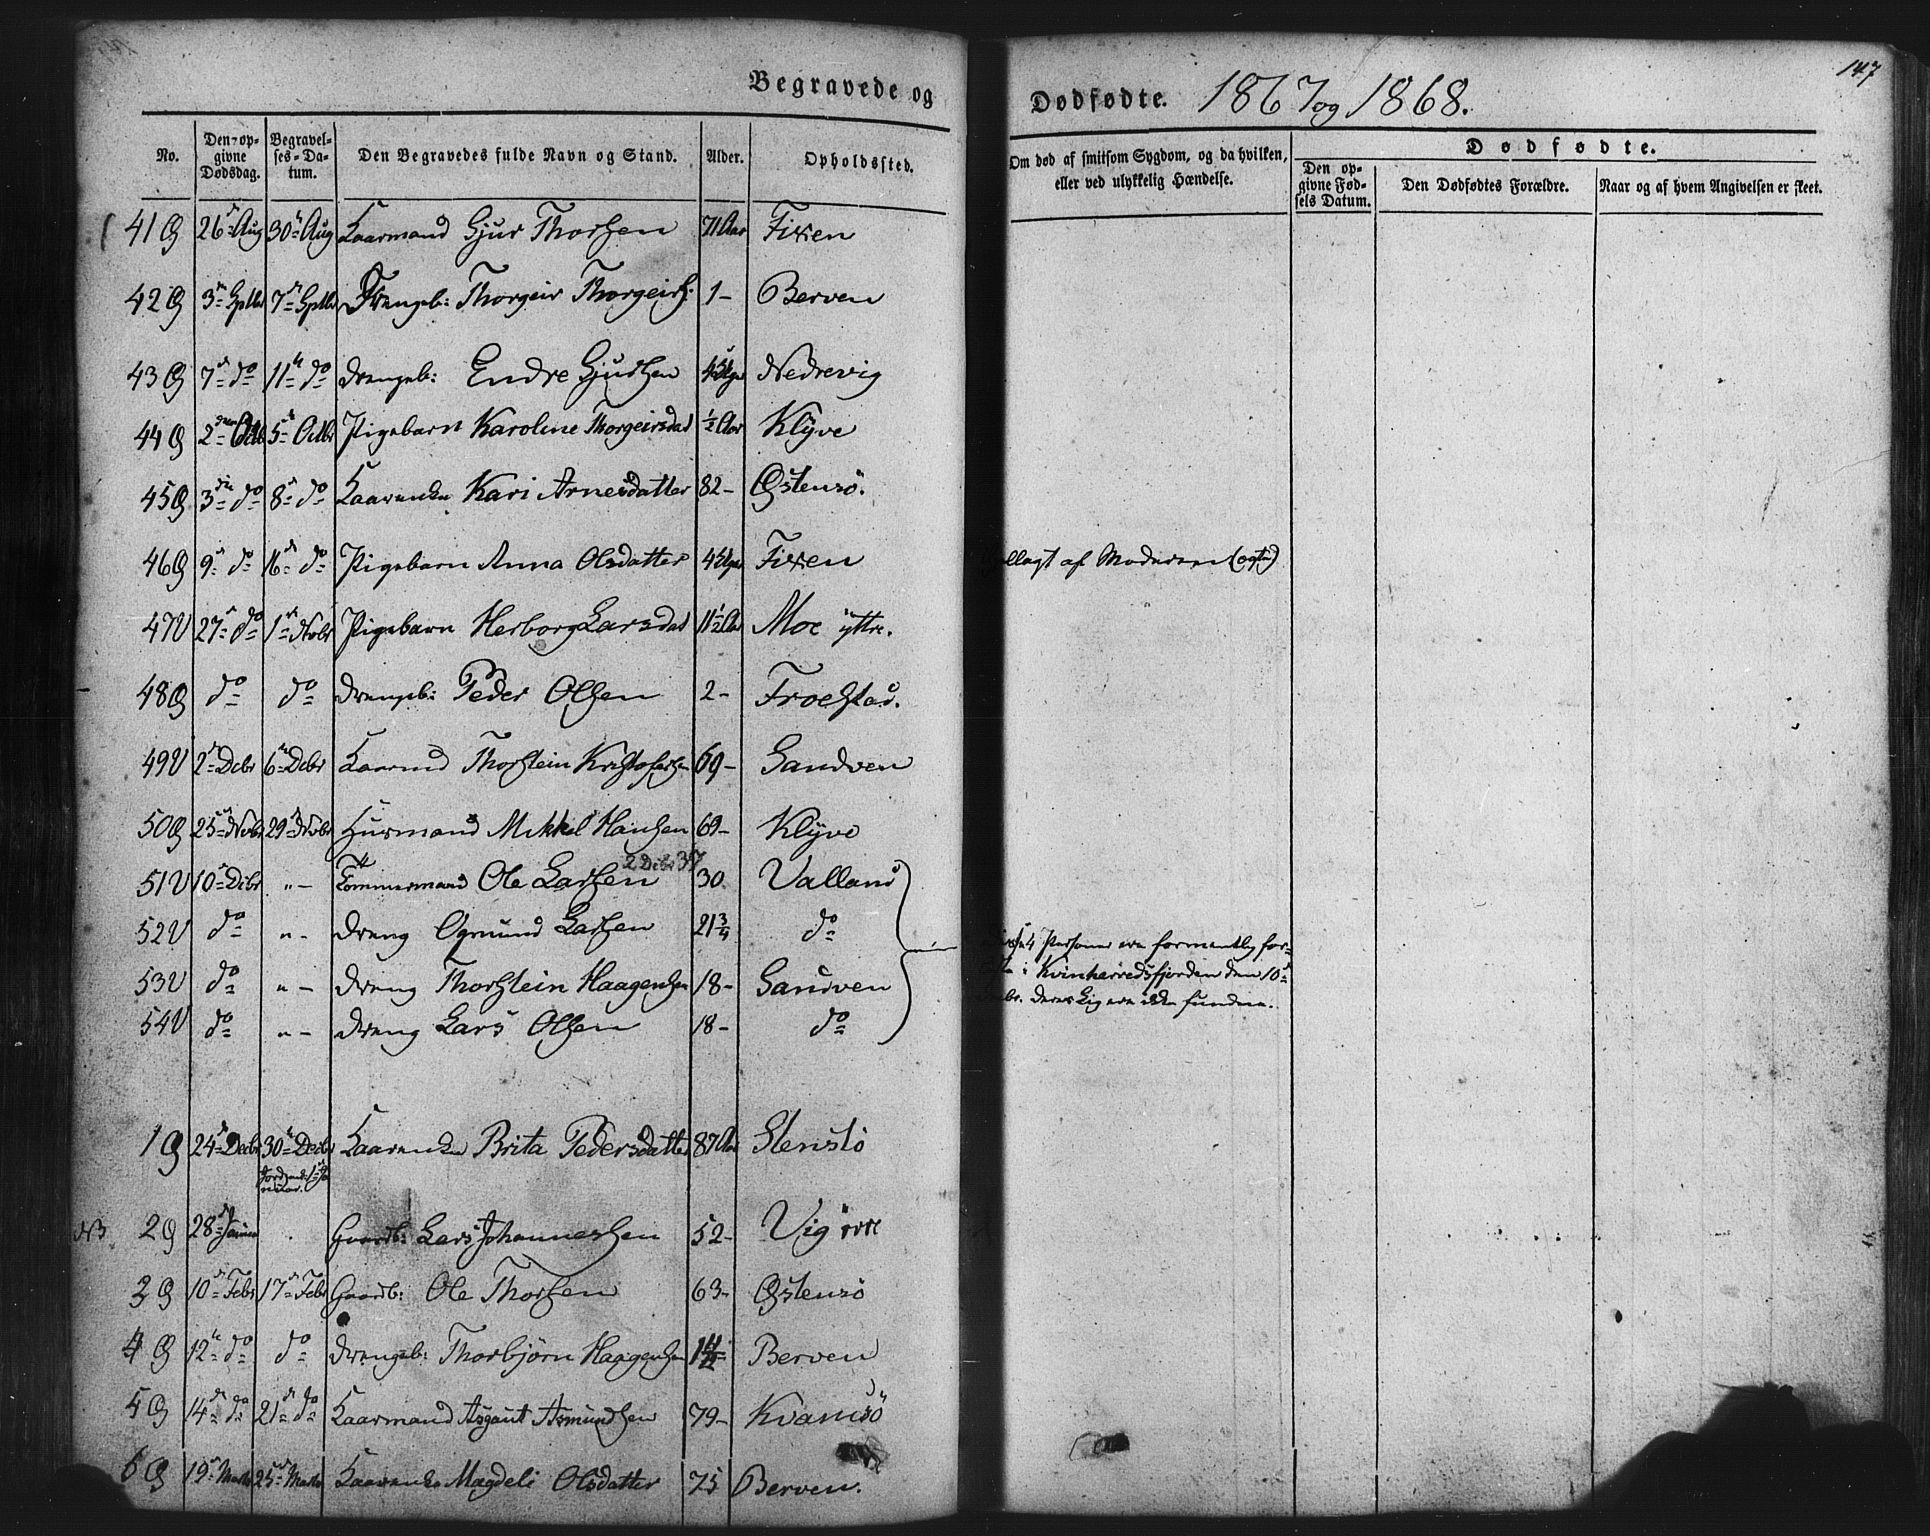 147
Begravede og Dødfødte. 1867 og 1868.
No. Den op-givne Dødsdag. Begravel-ses-Da-tum. Den Begravedes fulde Navn og Stand. Alder. Opholdssted. Om død af smitsom Sygdom, og da hvilken, eller ved ulykkelig Hændelse. Dødfødte.
Den op-givne Fød-sels Datum. Den Dødfødtes Forældre. Naar og af hvem Angivelsen er skeet.
41 Ø 26 Aug 30 Aug Kaarmand Gjur Thorsen 71 Aar Fixen
42 Ø 3 Sptbr 7 Sptbr Drengeb: Thorgeir Thorgeirs. 1 - Berven
43 Ø 7 do 11 do Drengeb: Endre Gjurtsen Nedrevig
44 Ø 2den Octb 5 Octbr Pigebarn Karoline Thorgeirsdat ½ Aar Klÿve
45 Ø 3 do 8 do Kaarenke Kari Arnesdatter 82 - Østensö.
46 Ø 9 do 16 do Pigebarn Anna Olsdatter 4 Uger Fixen af Moderen
47 V 27 do 1 Nvbr Pigebarn Herborg Larsdat 11½ Aar Moe ÿttre.
48 Ø do do Drengeb: Peder Olsen 2 - Froestad.
49 V 2 Dcbr 6 Dcbr Kaarmd Thorstein Kristofersen 69 - Sandven
50 Ø 25 Nvbr 29 Nvbr Husmand Mikkel Hansen 69 - Klÿve
2 Debr 37
51 V 10 Dcbr " - Tömmermand Ole Larsen 30 Valland
52 V do " - Dreng Ogmund Larsen 21¾ do 4 Personer ere formentlig for-
53 V do " - Dreng Thorstein Haagensen 18 - Sandven i Kvinherredsfjorden den 10
54 V do " - Dreng Lars Olsen 18 - do deres Lig ere ikke fundne.
1 Ø 24 Decbr 30 Decbr Kaarenke Brita Pedersdatter 87 Aar Stenstö
NB 2 Ø 28 Januar Gaardb: Lars Johannessen 52 - Vig övre
3 Ø 10 Febr 17 Febr Gaardb: Ole Thorsen 63 - Østensö
4 Ø 12 do do Drengeb: Thorbjörn Haagensen Berven
5 Ø 14 do 21 do Kaarmand Asgaut Asmundsen 79 - Kvamsö
6 Ø 19 Marts 25 Marts Kaarenke Magdeli Olsdatter 75 Berven.